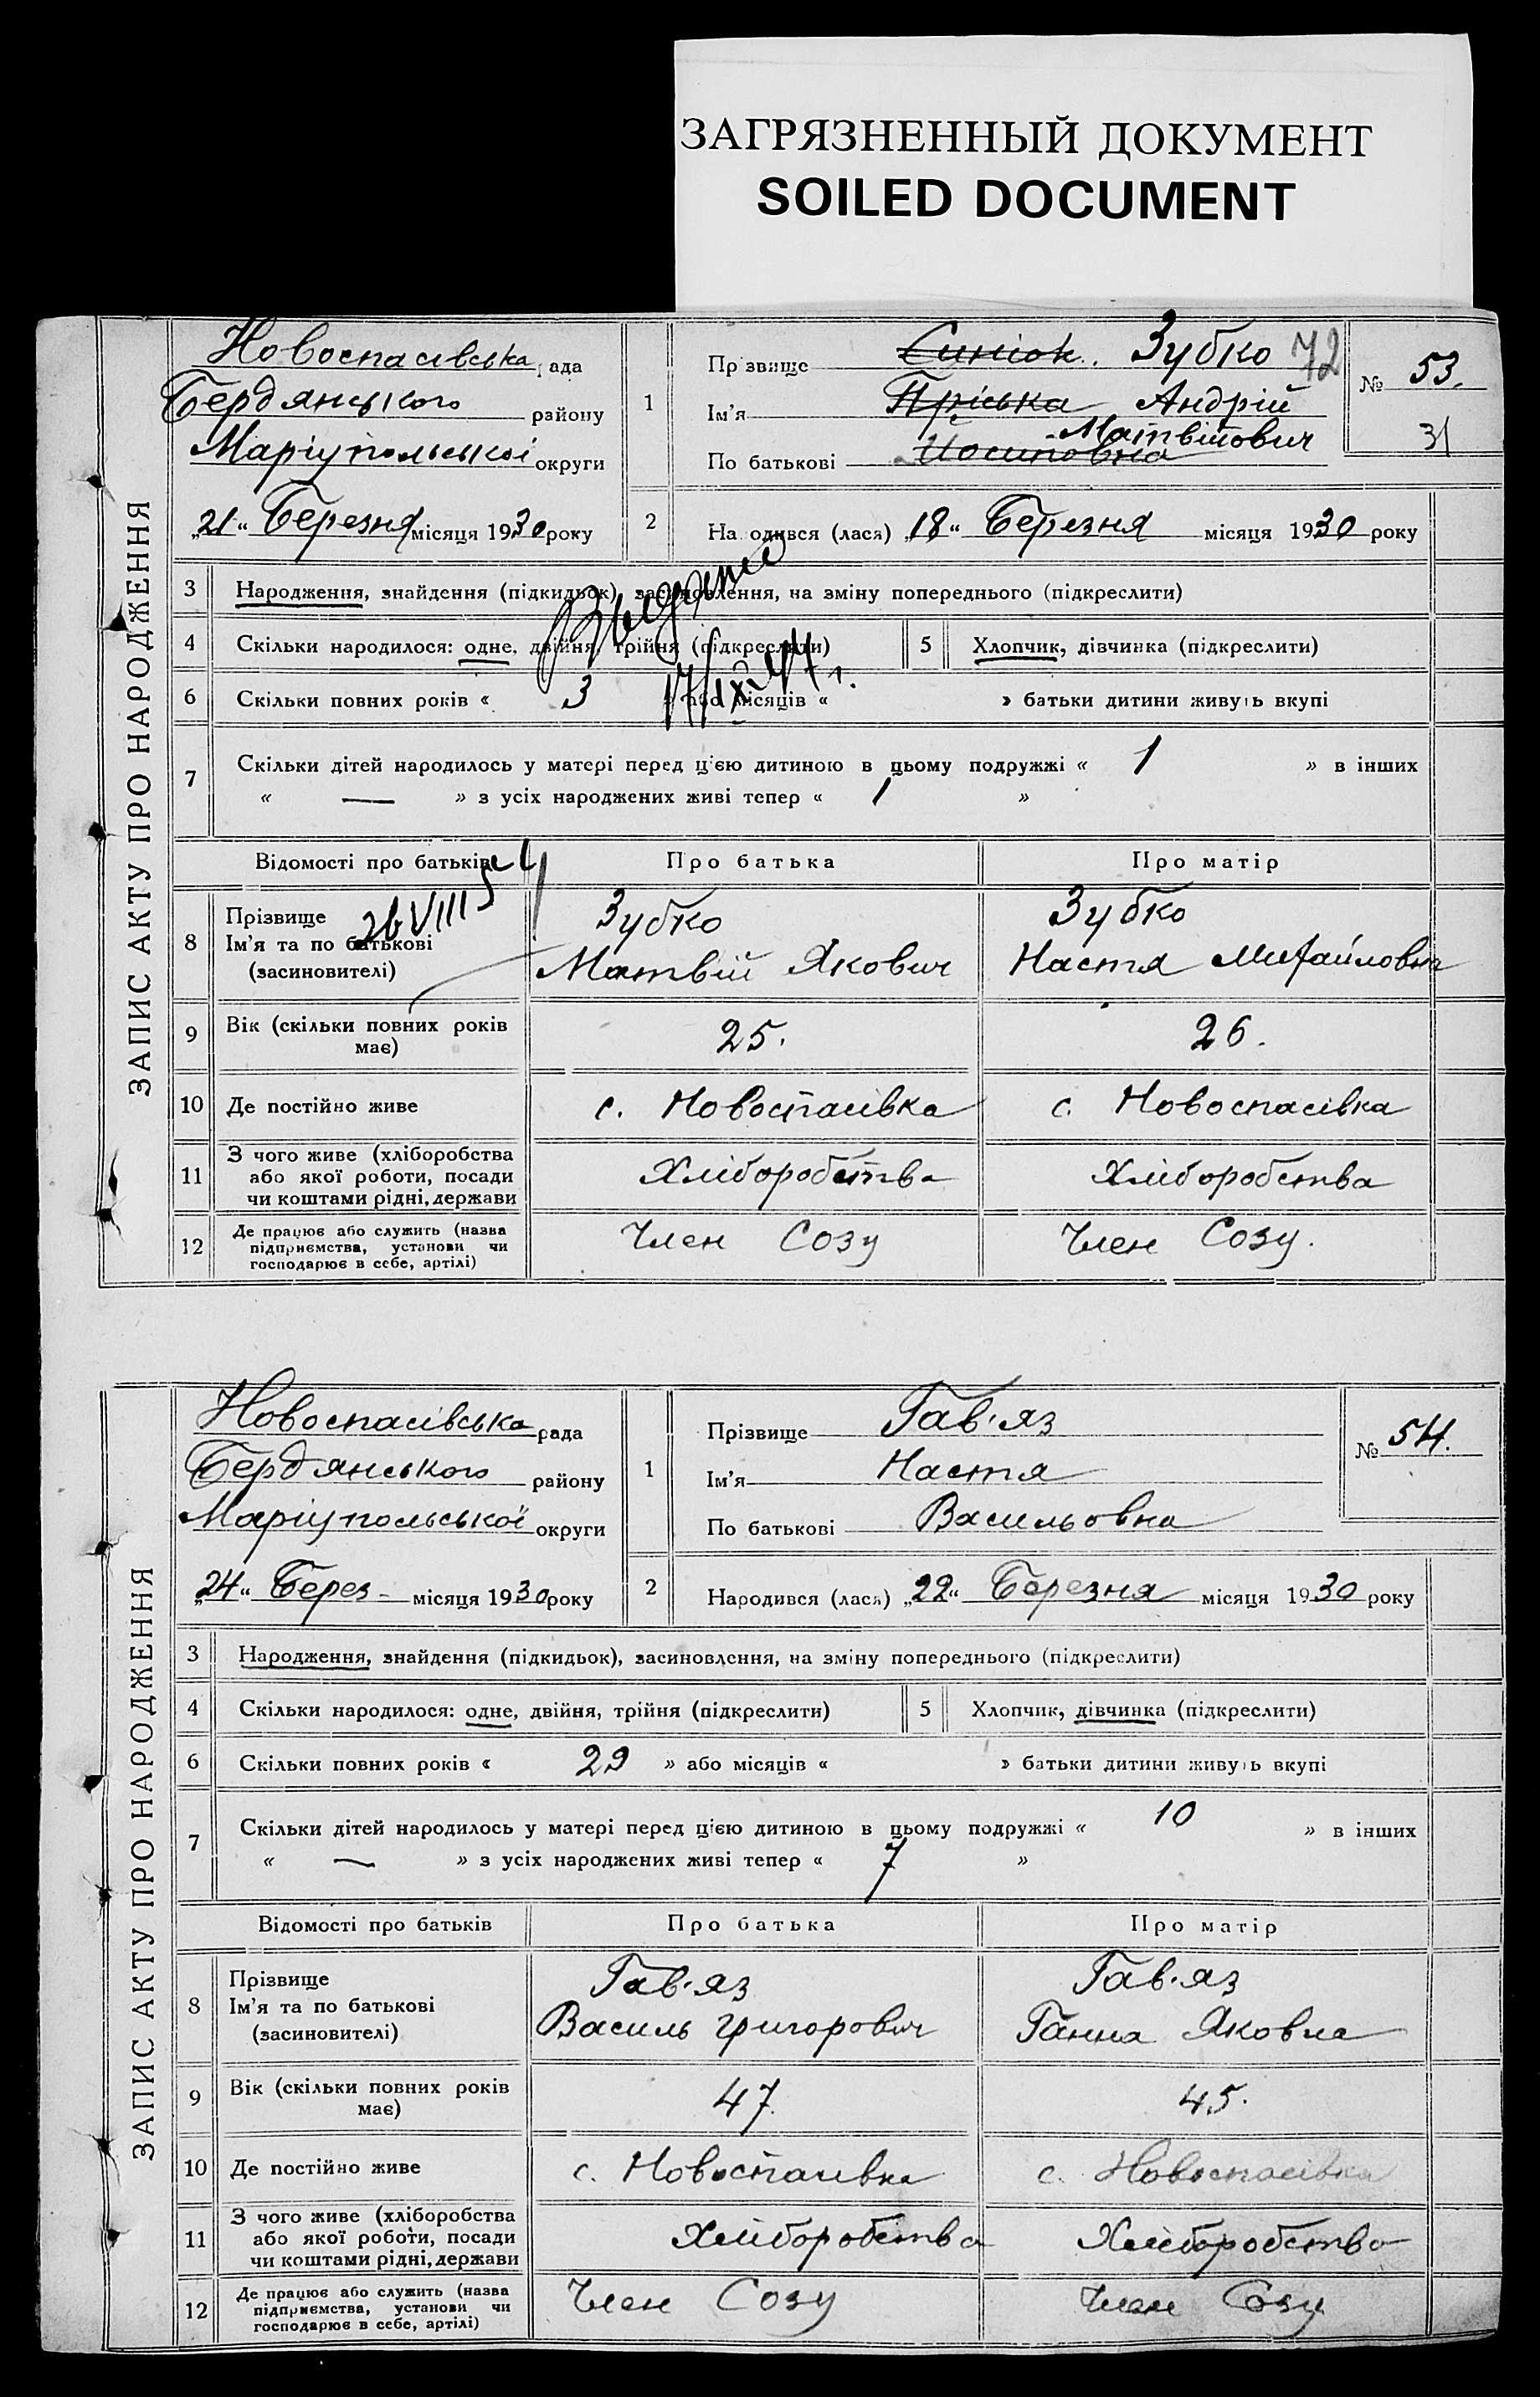 ЗАГРЯЗНЕННЫЙ ДОКУМЕНТ
SOILED DOCUMENT
ЗАПИС АКТУ ПРО НАРОДЖЕННЯ
Новоспасівська рада
Бердянського району
Маріупольської округи
„21“ Березня місяця 1930 року
1
Прізвище Синіок. Зубко 72
Ім'я Пріська Андрій
По батькові Йосиповна Матвійович
№ 53.
31
2 Народився (лася) „18“ Березня місяця 1930 року
3 Народження, знайдення (підкидьок), засиновлення, на зміну попереднього (підкреслити)
4 Скільки народилося: одне, двійня, трійня (підкреслити) 5 Хлопчик, дівчинка (підкреслити)
17/IX 44 г.
6 Скільки повних років « 3 » або місяців « » батьки дитини живуть вкупі
7 Скільки дітей народилось у матері перед цією дитиною в цьому подружжі « 1 » в інших
« — » з усіх народжених живі тепер « 1 »
Відомості про батьків Про батька Про матір
26 VIII 54
8 Прізвище Ім'я та по батькові (засновителі)
Зубко Зубко
Матвій Якович Настя Михайловна
9 Вік (скільки повних років має) 25. 26.
10 Де постійно живе с. Новоспасівка с. Новоспасівка
11 З чого живе (хліборобства або якої роботи, посади чи коштами рідні, держави Хліборобства Хліборобства
12 Де працює або служить (назва підприємства, установи чи господарює в себе, артілі) Член Созу Член Созу.
ЗАПИС АКТУ ПРО НАРОДЖЕННЯ
Новоспасівська рада
Бердянського району
Маріупольської округи
„24“ Берез- місяця 1930 року
1
Прізвище Гав'яз
Ім'я Настя
По батькові Васильовна
№ 54.
2 Народився (лася) „22“ Березня місяця 1930 року
3 Народження, знайдення (підкидьок), засиновлення, на зміну попереднього (підкреслити)
4 Скільки народилося: одне, двійня, трійня (підкреслити) 5 Хлопчик, дівчинка (підкреслити)
6 Скільки повних років « 29 » або місяців « » батьки дитини живуть вкупі
7 Скільки дітей народилось у матері перед цією дитиною в цьому подружжі « 10 » в інших
« — » з усіх народжених живі тепер « 7 »
Відомості про батьків Про батька Про матір
8 Прізвище Ім'я та по батькові (засиновителі)
Гав'яз Гав'яз
Василь Григорович Ганна Яковна
9 Вік (скільки повних років має) 47 45.
10 Де постійно живе с. Новоспасівка с. Новоспасівка
11 З чого живе (хліборобства або якої роботи, посади чи коштами рідні, держави Хліборобства Хліборобство
12 Де працює або служить (назва підприємства, установи чи господарює в себе, артілі) Член Созу Член Созу